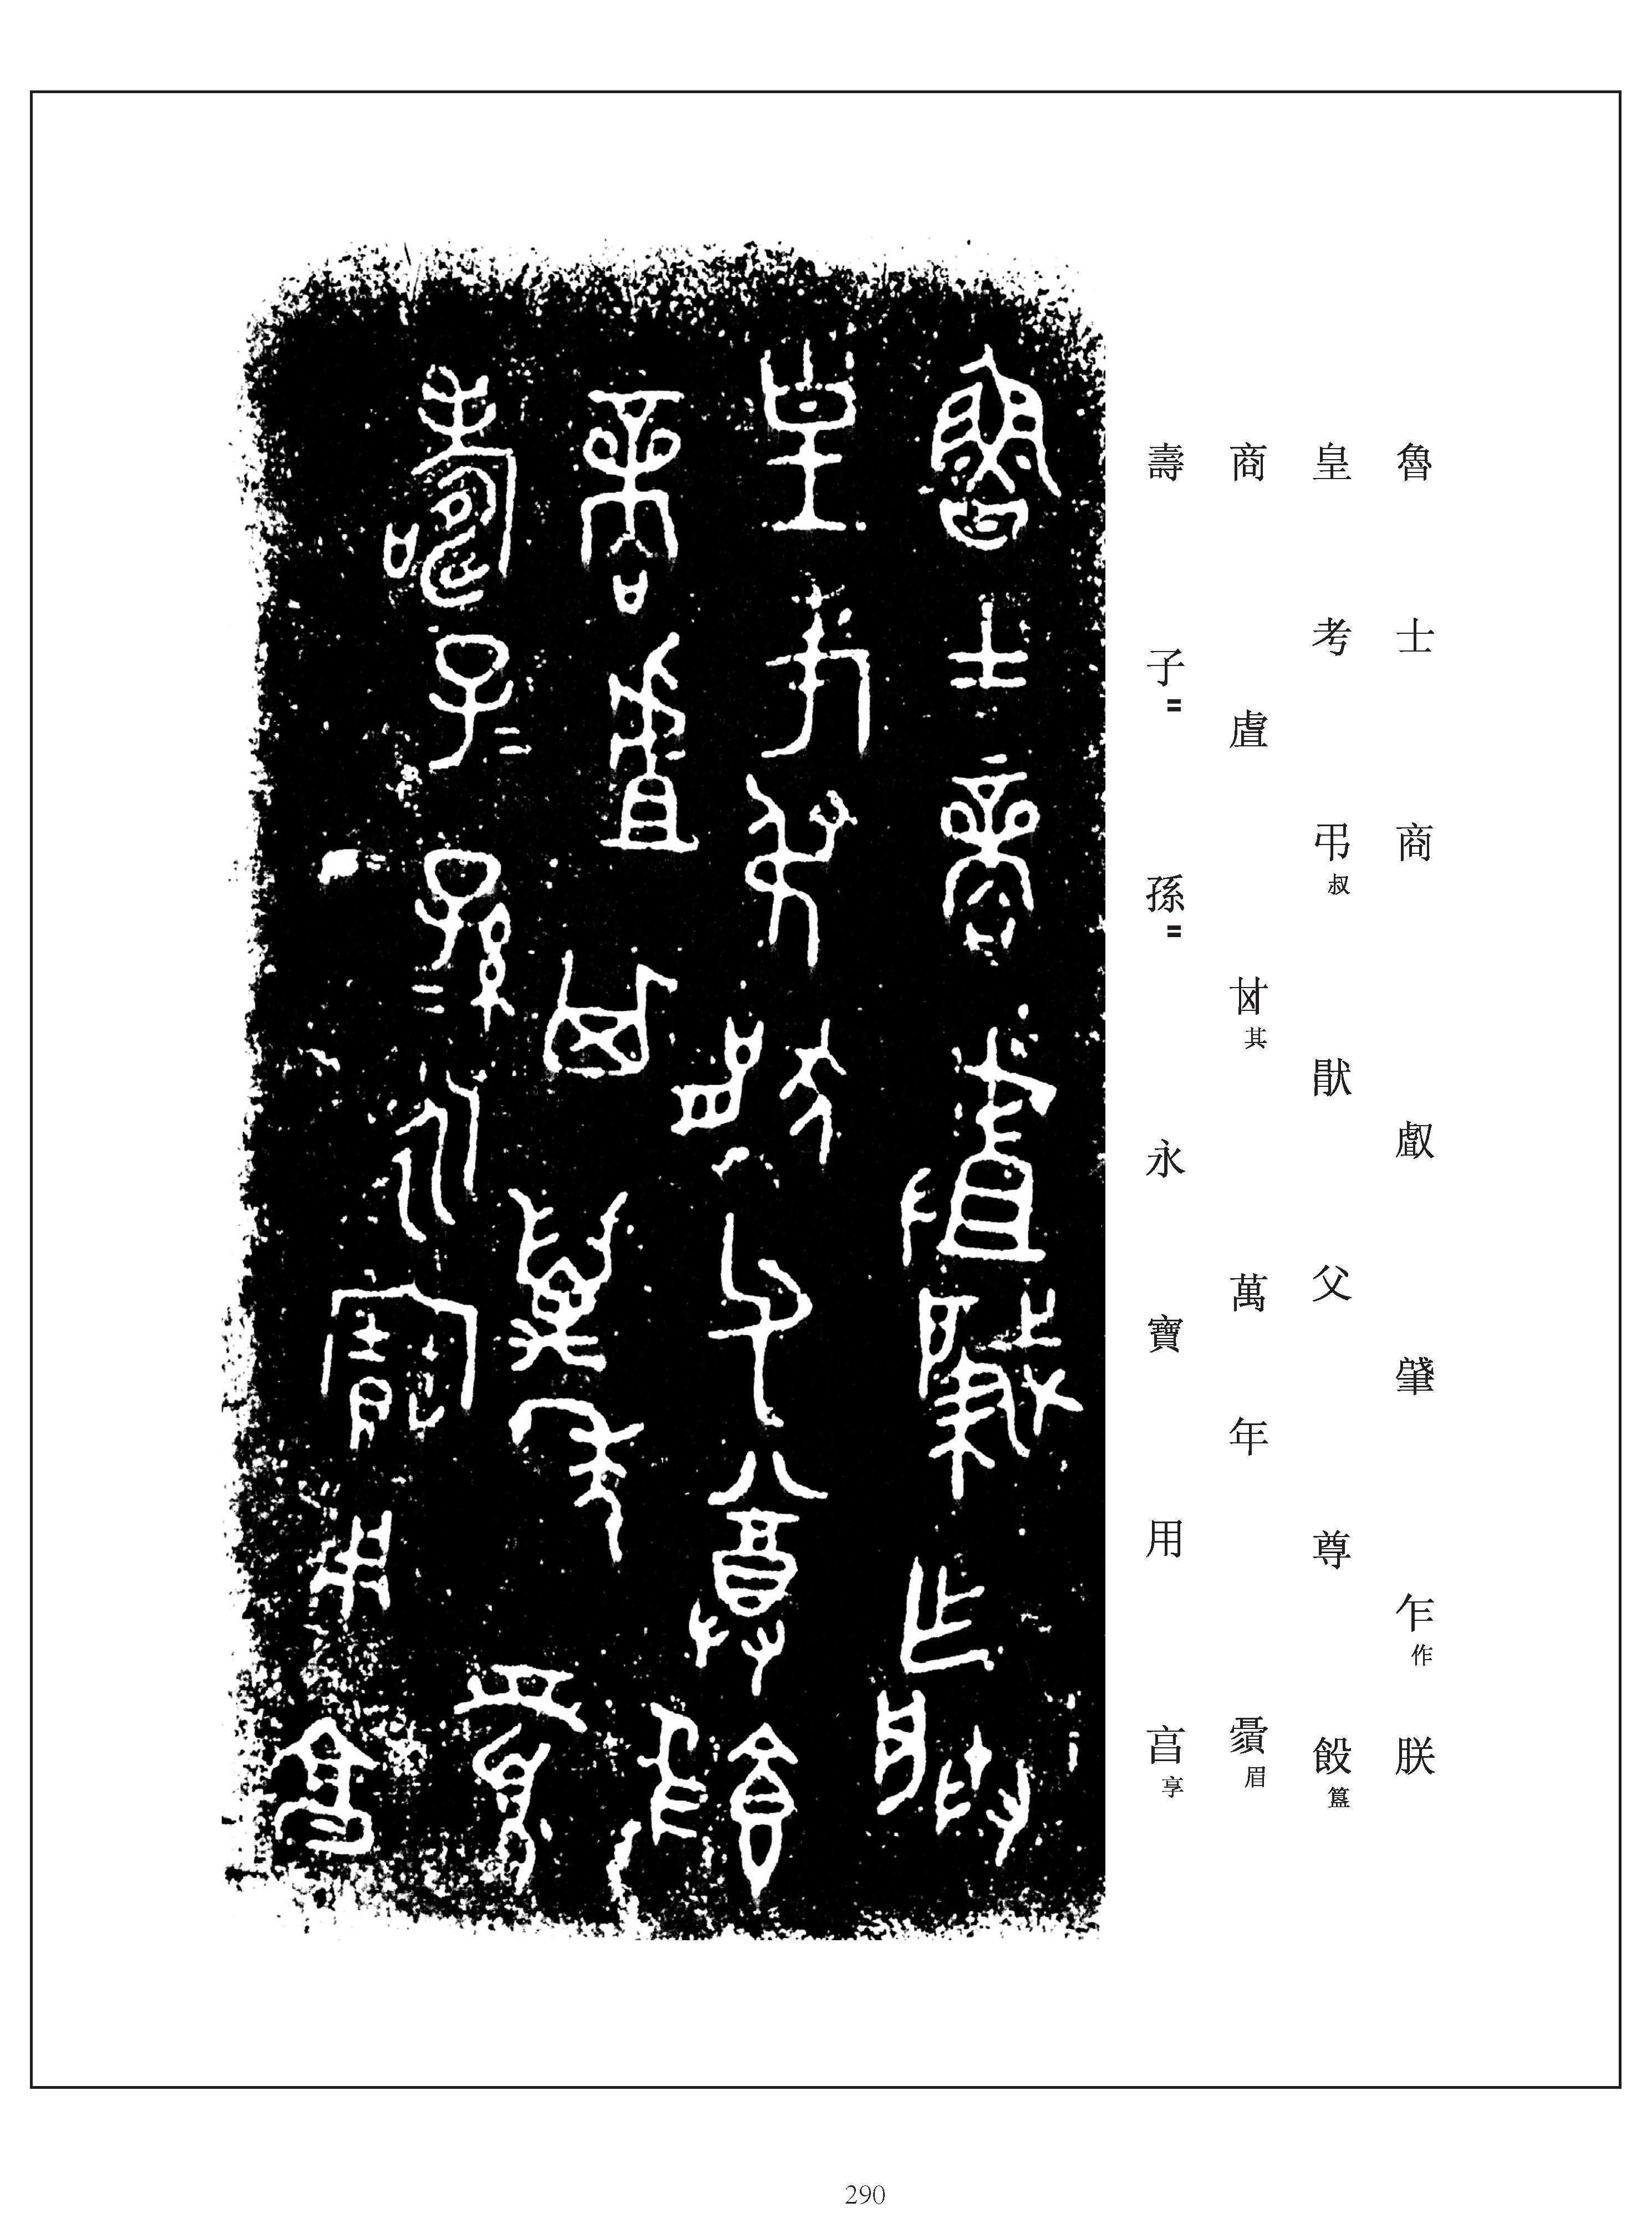 魯士商䖒肇乍作朕
皇考弔叔猒父尊𣪘簋
商䖒𠀠其萬年眉
壽子〓孫〓永寶用亯享
290